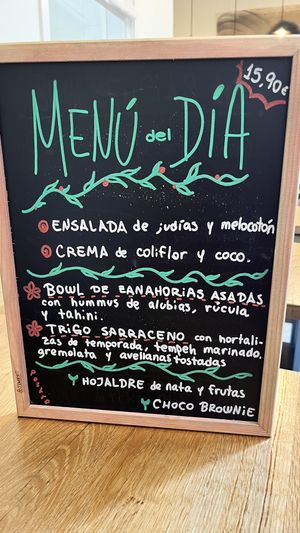 15,90€
MENÚ del DÍA
ENSALADA de judías y melocotón
CREMA de coliflor y coco.
BOWL DE ZANAHORIAS ASADAS
con hummus de alubias, rúcula
y tahini.
TRIGO SARRACENO con hortali-
zas de temporada, tempeh marinado,
gremolata y avellanas tostadas
HOJALDRE de nata y frutas
CHOCO BROWNIE